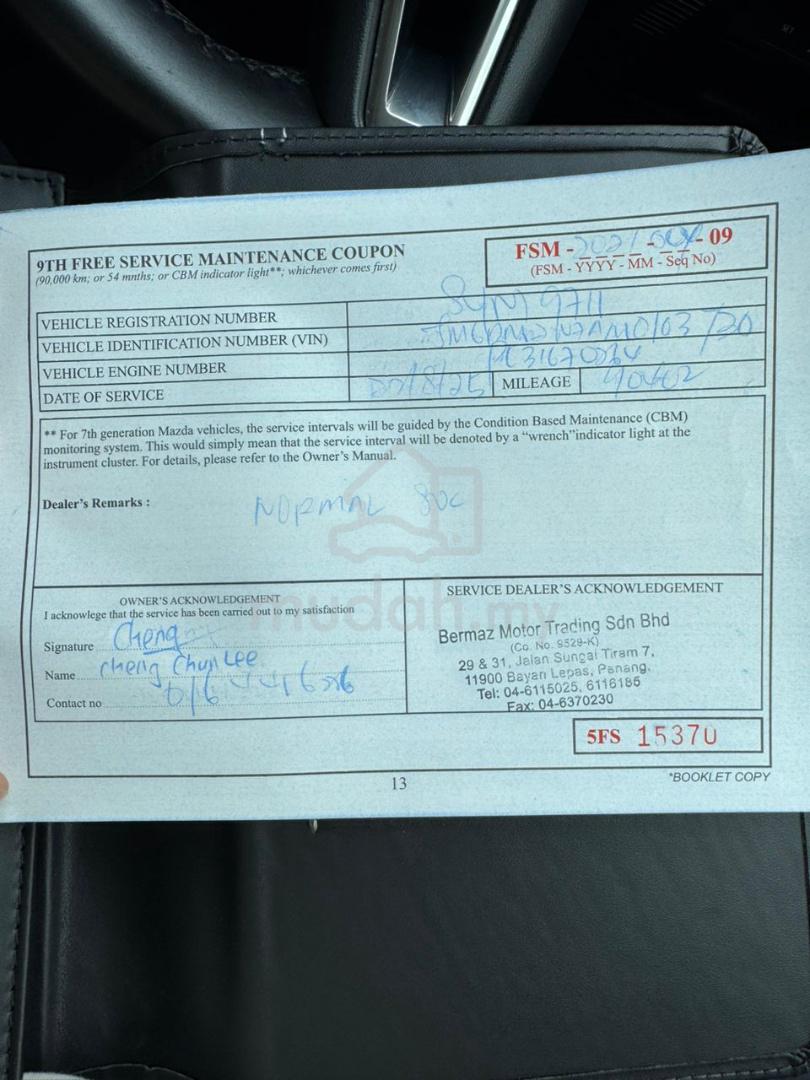 9TH FREE SERVICE MAINTENANCE COUPON
(90,000 km; or 54 mnths; or CBM indicator light**; whichever comes first)
FSM - 2021 - - 09
(FSM - YYYY - MM - Seq No)
VEHICLE REGISTRATION NUMBER
VEHICLE IDENTIFICATION NUMBER (VIN)
VEHICLE ENGINE NUMBER
DATE OF SERVICE /8/25 MILEAGE 90402
** For 7th generation Mazda vehicles, the service intervals will be guided by the Condition Based Maintenance (CBM)
monitoring system. This would simply mean that the service interval will be denoted by a “wrench”indicator light at the
instrument cluster. For details, please refer to the Owner's Manual.
Dealer's Remarks : NORMAL
mudah.my
OWNER'S ACKNOWLEDGEMENT
I acknowlege that the service has been carried out to my satisfaction
Signature Cheng
Name Cheng Chun Lee
Contact no
SERVICE DEALER'S ACKNOWLEDGEMENT
Bermaz Motor Trading Sdn Bhd
(Co. No. 9529-K)
29 & 31, Jalan Sungai Tiram 7,
11900 Bayan Lepas, Penang.
Tel: 04-6115025, 6116185
Fax: 04-6370230
5FS 15370
13
*BOOKLET COPY